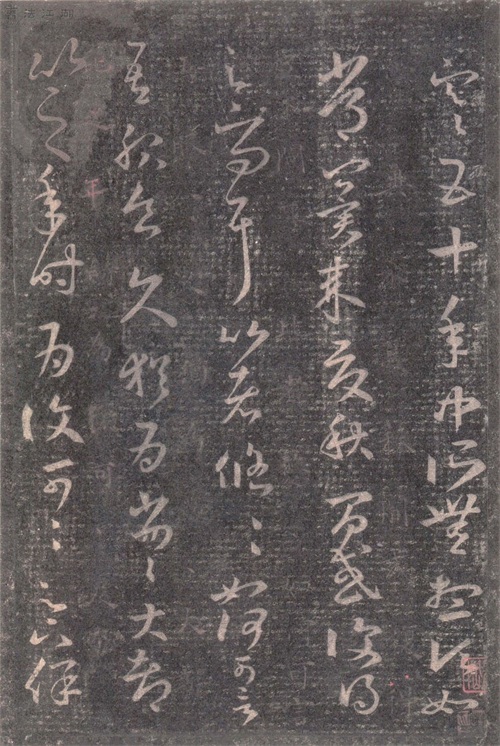 寒五十年中所無想頃如
常冀來夏秋間或復得
足下問耳比者悠悠如何可言
吾服食久猶為劣劣大都
比之年時為復可可足下保